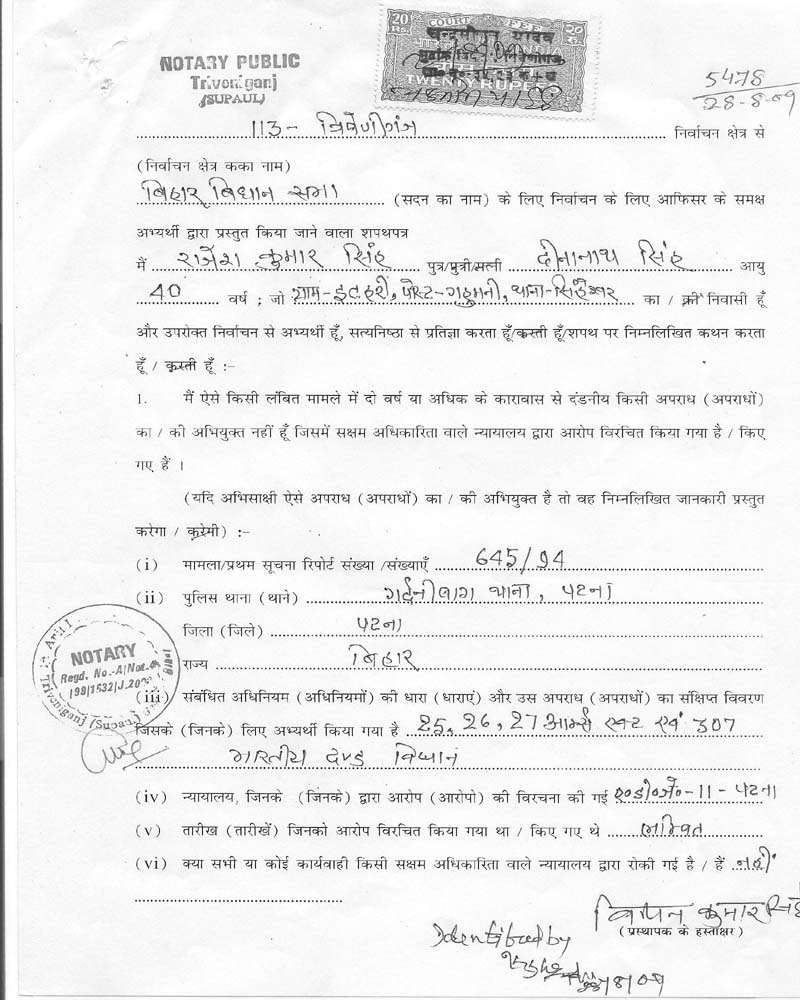 20 Rs. COURT FEE 20 रु.
INDIA
चन्द्रमोहन यादव
TWENTY RUPEES
NOTARY PUBLIC
Triveniganj
(SUPAUL)
5478
28-8-09
113- त्रिवेणीगंज निर्वाचन क्षेत्र से
(निर्वाचन क्षेत्र कका नाम)
बिहार बिधान सभा (सदन का नाम) के लिए निर्वाचन के लिए आफिसर के समक्ष
अभ्यर्थी द्वारा प्रस्तुत किया जाने वाला शपथपत्र
मैं राजेश कुमार सिंह पुत्र/पुत्री/पत्नी दीनानाथ सिंह आयु
40 वर्ष ; जो ग्राम-इटहरी, पोस्ट-गहुमनी, थाना-सिंहेश्वर का / की निवासी हूँ
और उपरोक्त निर्वाचन से अभ्यर्थी हूँ, सत्यनिष्ठा से प्रतिज्ञा करता हूँ/करती हूँ/शपथ पर निम्नलिखित कथन करता
हूँ / करती हूँ :–
1. मैं ऐसे किसी लंबित मामले में दो वर्ष या अधिक के कारावास से दंडनीय किसी अपराध (अपराधों)
का / की अभियुक्त नहीं हूँ जिसमें सक्षम अधिकारिता वाले न्यायालय द्वारा आरोप विरचित किया गया है / किए
गए हैं ।
(यदि अभिसाक्षी ऐसे अपराध (अपराधों) का / की अभियुक्त है तो वह निम्नलिखित जानकारी प्रस्तुत
करेगा / करेगी) :–
(i) मामला/प्रथम सूचना रिपोर्ट संख्या /संख्याएँ 645/94
(ii) पुलिस थाना (थाने) गर्दनीबाग थाना, पटना
जिला (जिले) पटना
राज्य बिहार
NOTARY
Regd. No.-A/Not.-
Triveniganj (Supaul)
(iii) संबंधित अधिनियम (अधिनियमों) की धारा (धाराएं) और उस अपराध (अपराधों) का संक्षिप्त विवरण
जिसके (जिनके) लिए अभ्यर्थी किया गया है 25, 26, 27 आर्म्स एक्ट एवं 307
भारतीय दण्ड विधान
(iv) न्यायालय, जिनके (जिनके) द्वारा आरोप (आरोपो) की विरचना की गई ए०डी०जे०-11-पटना
(v) तारीख (तारीखें) जिनको आरोप विरचित किया गया था / किए गए थे लम्बित
(vi) क्या सभी या कोई कार्यवाही किसी सक्षम अधिकारिता वाले न्यायालय द्वारा रोकी गई है / हैं नहीं
कुमार सिंह
(प्रस्थापक के हस्ताक्षर)
Identified by